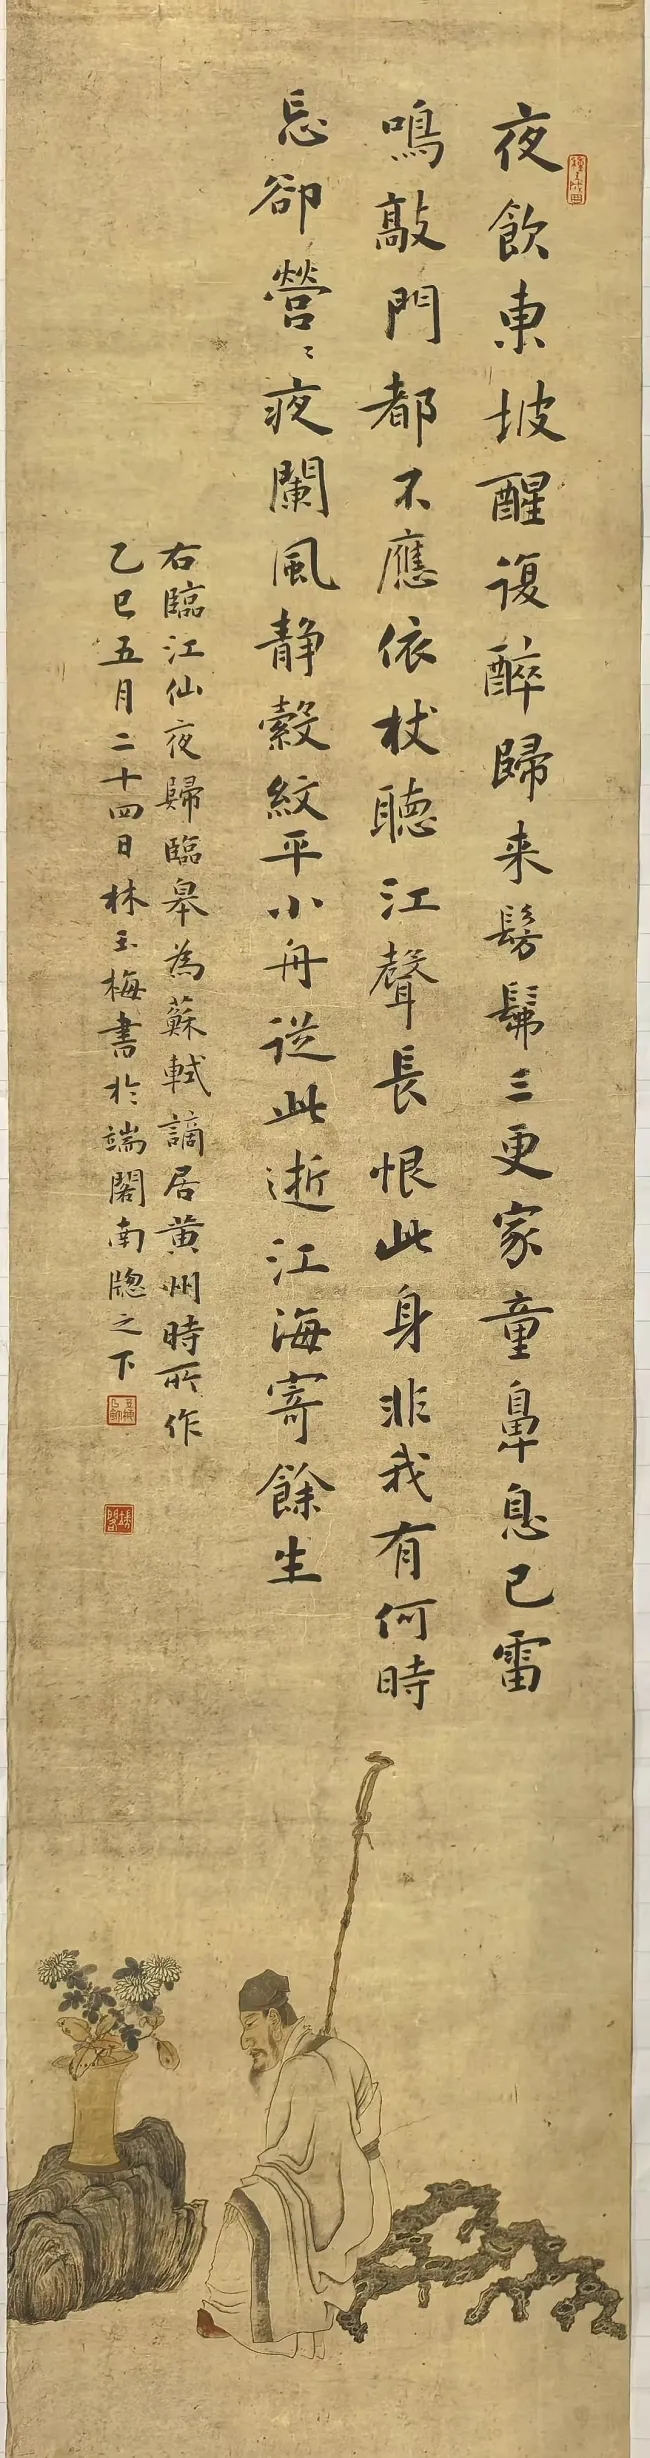 夜飲東坡醒復醉歸来髣髴三更家童鼻息已雷
鳴敲門都不應依杖聽江聲長恨此身非我有何時
忘卻營〻夜闌風静縠紋平小舟從此逝江海寄餘生
右臨江仙夜歸臨皋為蘇軾謫居黄州時所作
乙巳五月二十四日林玉梅書於端閣南牕之下